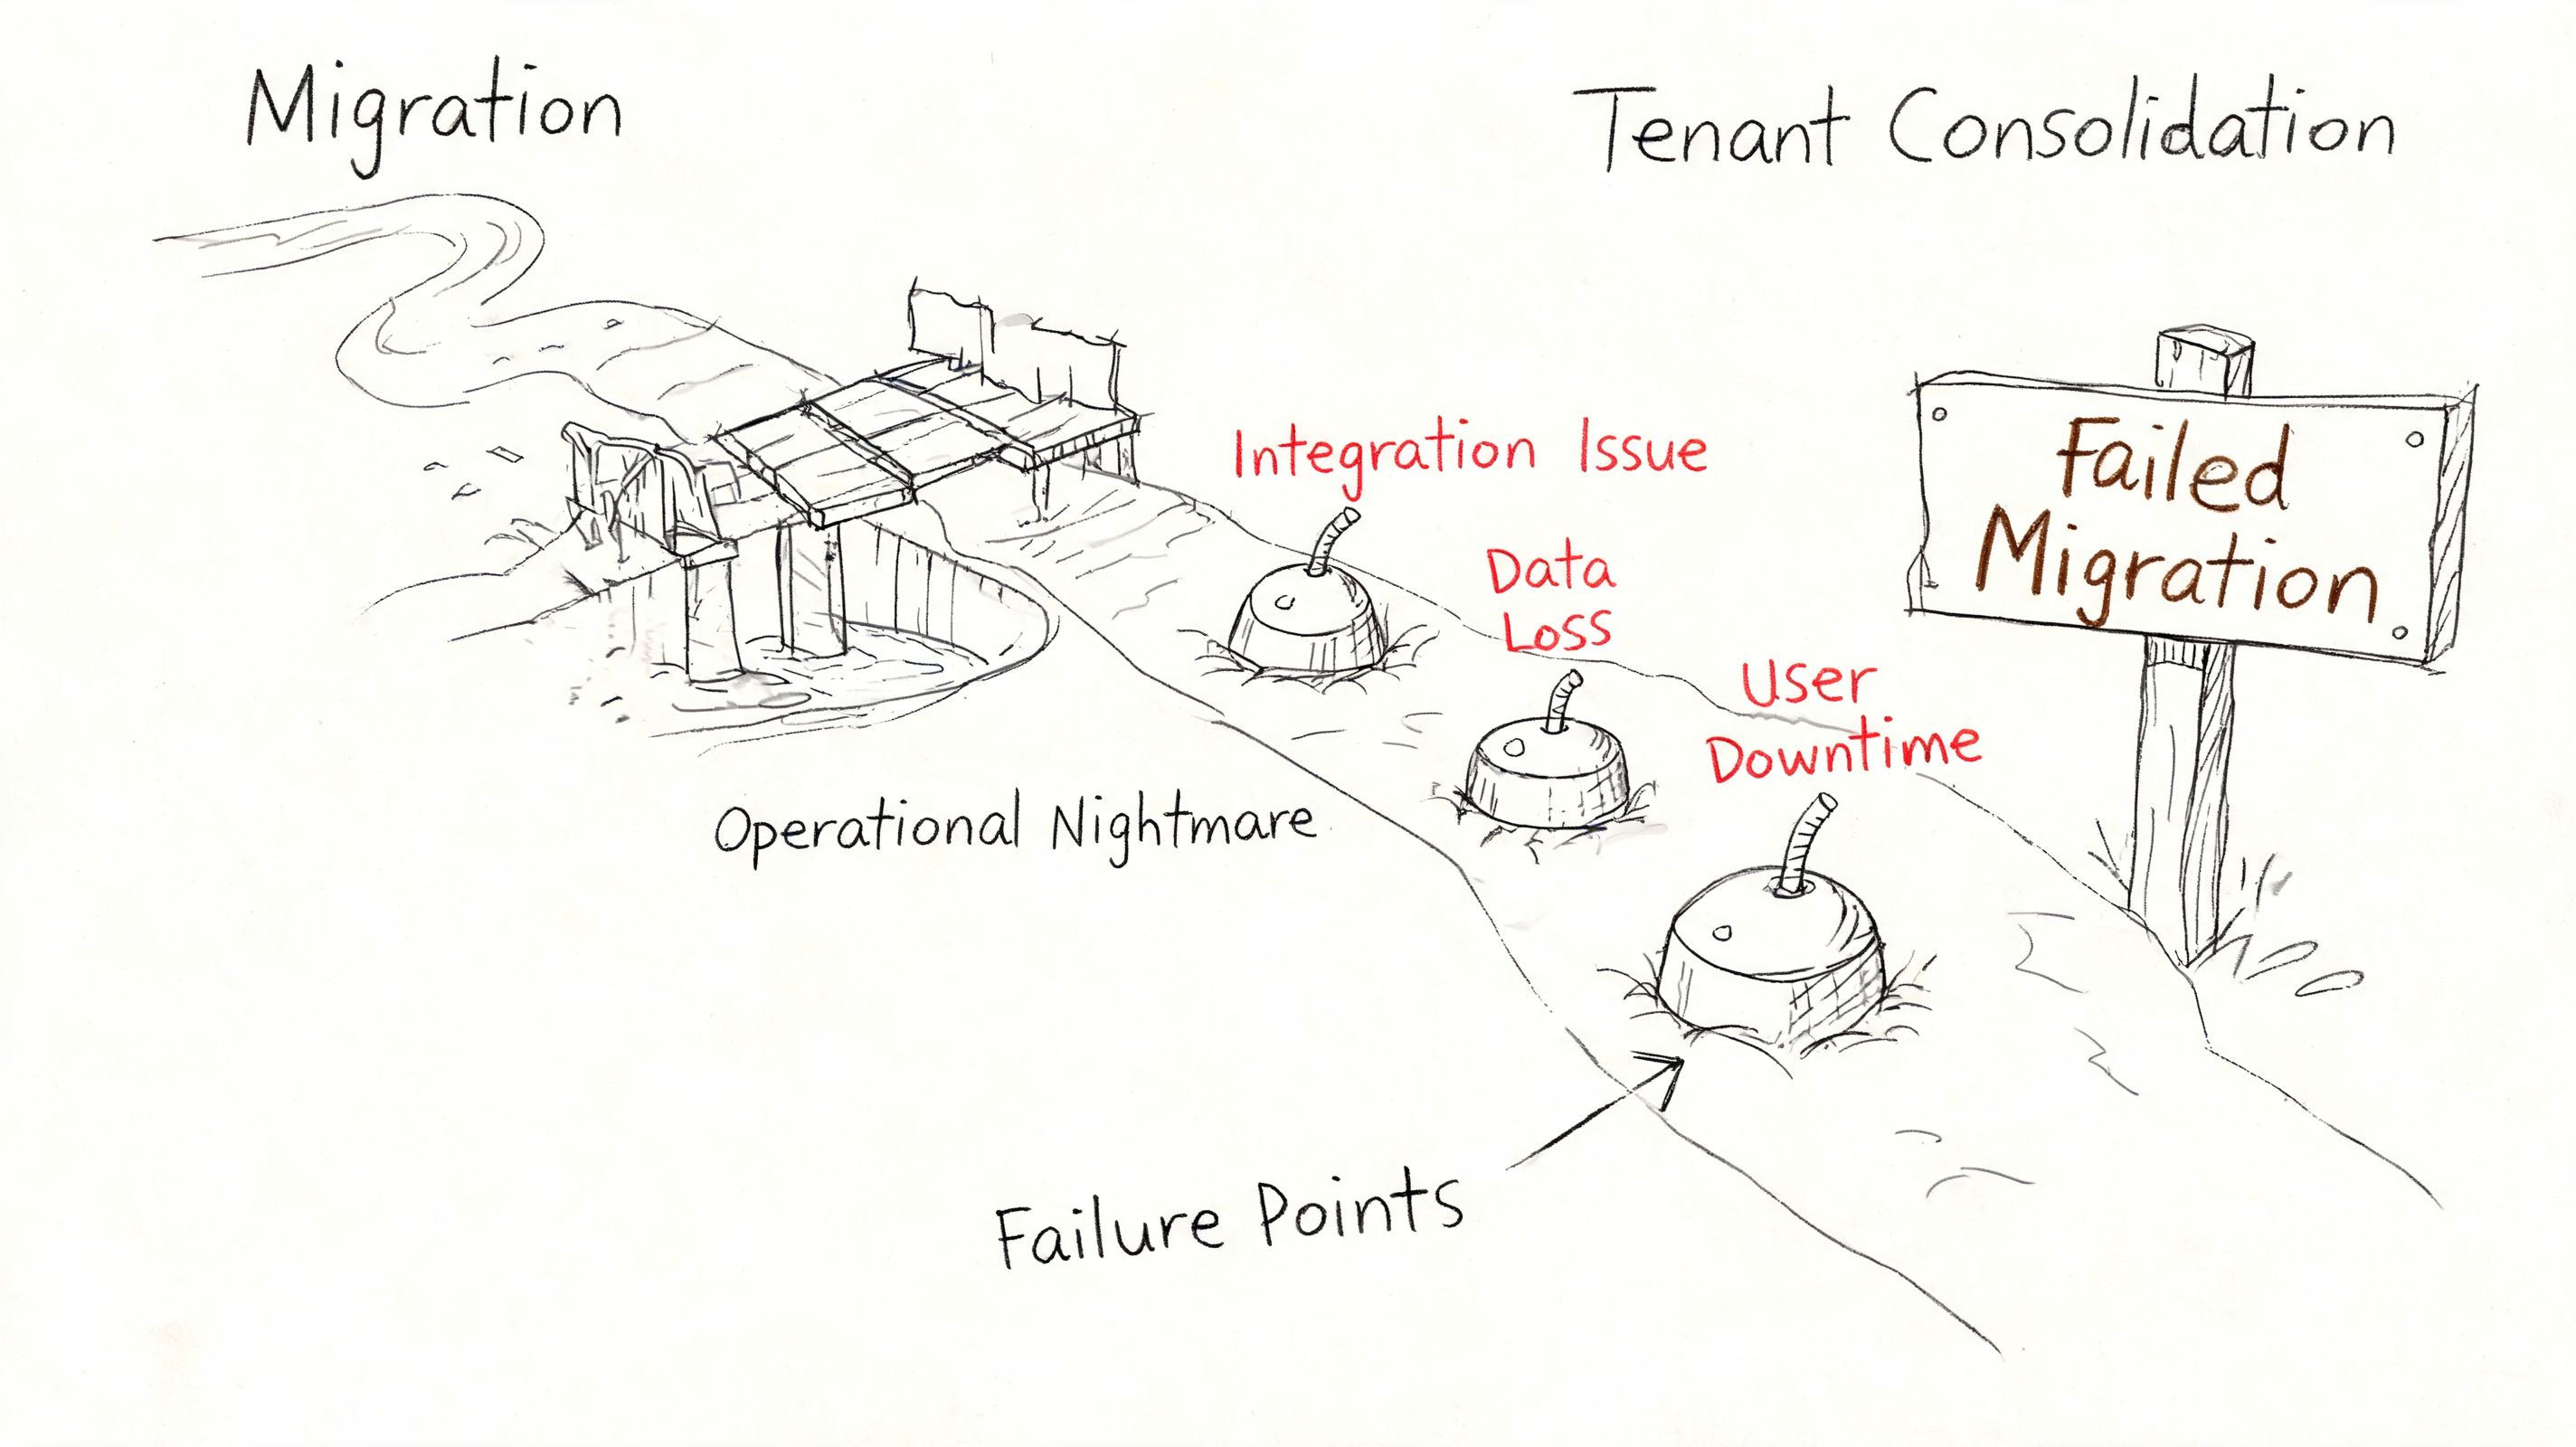 Migration
Tenant Consolidation
Integration Issue
Data
Loss
User
Downtime
Failed
Migration
Operational Nightmare
Failure Points